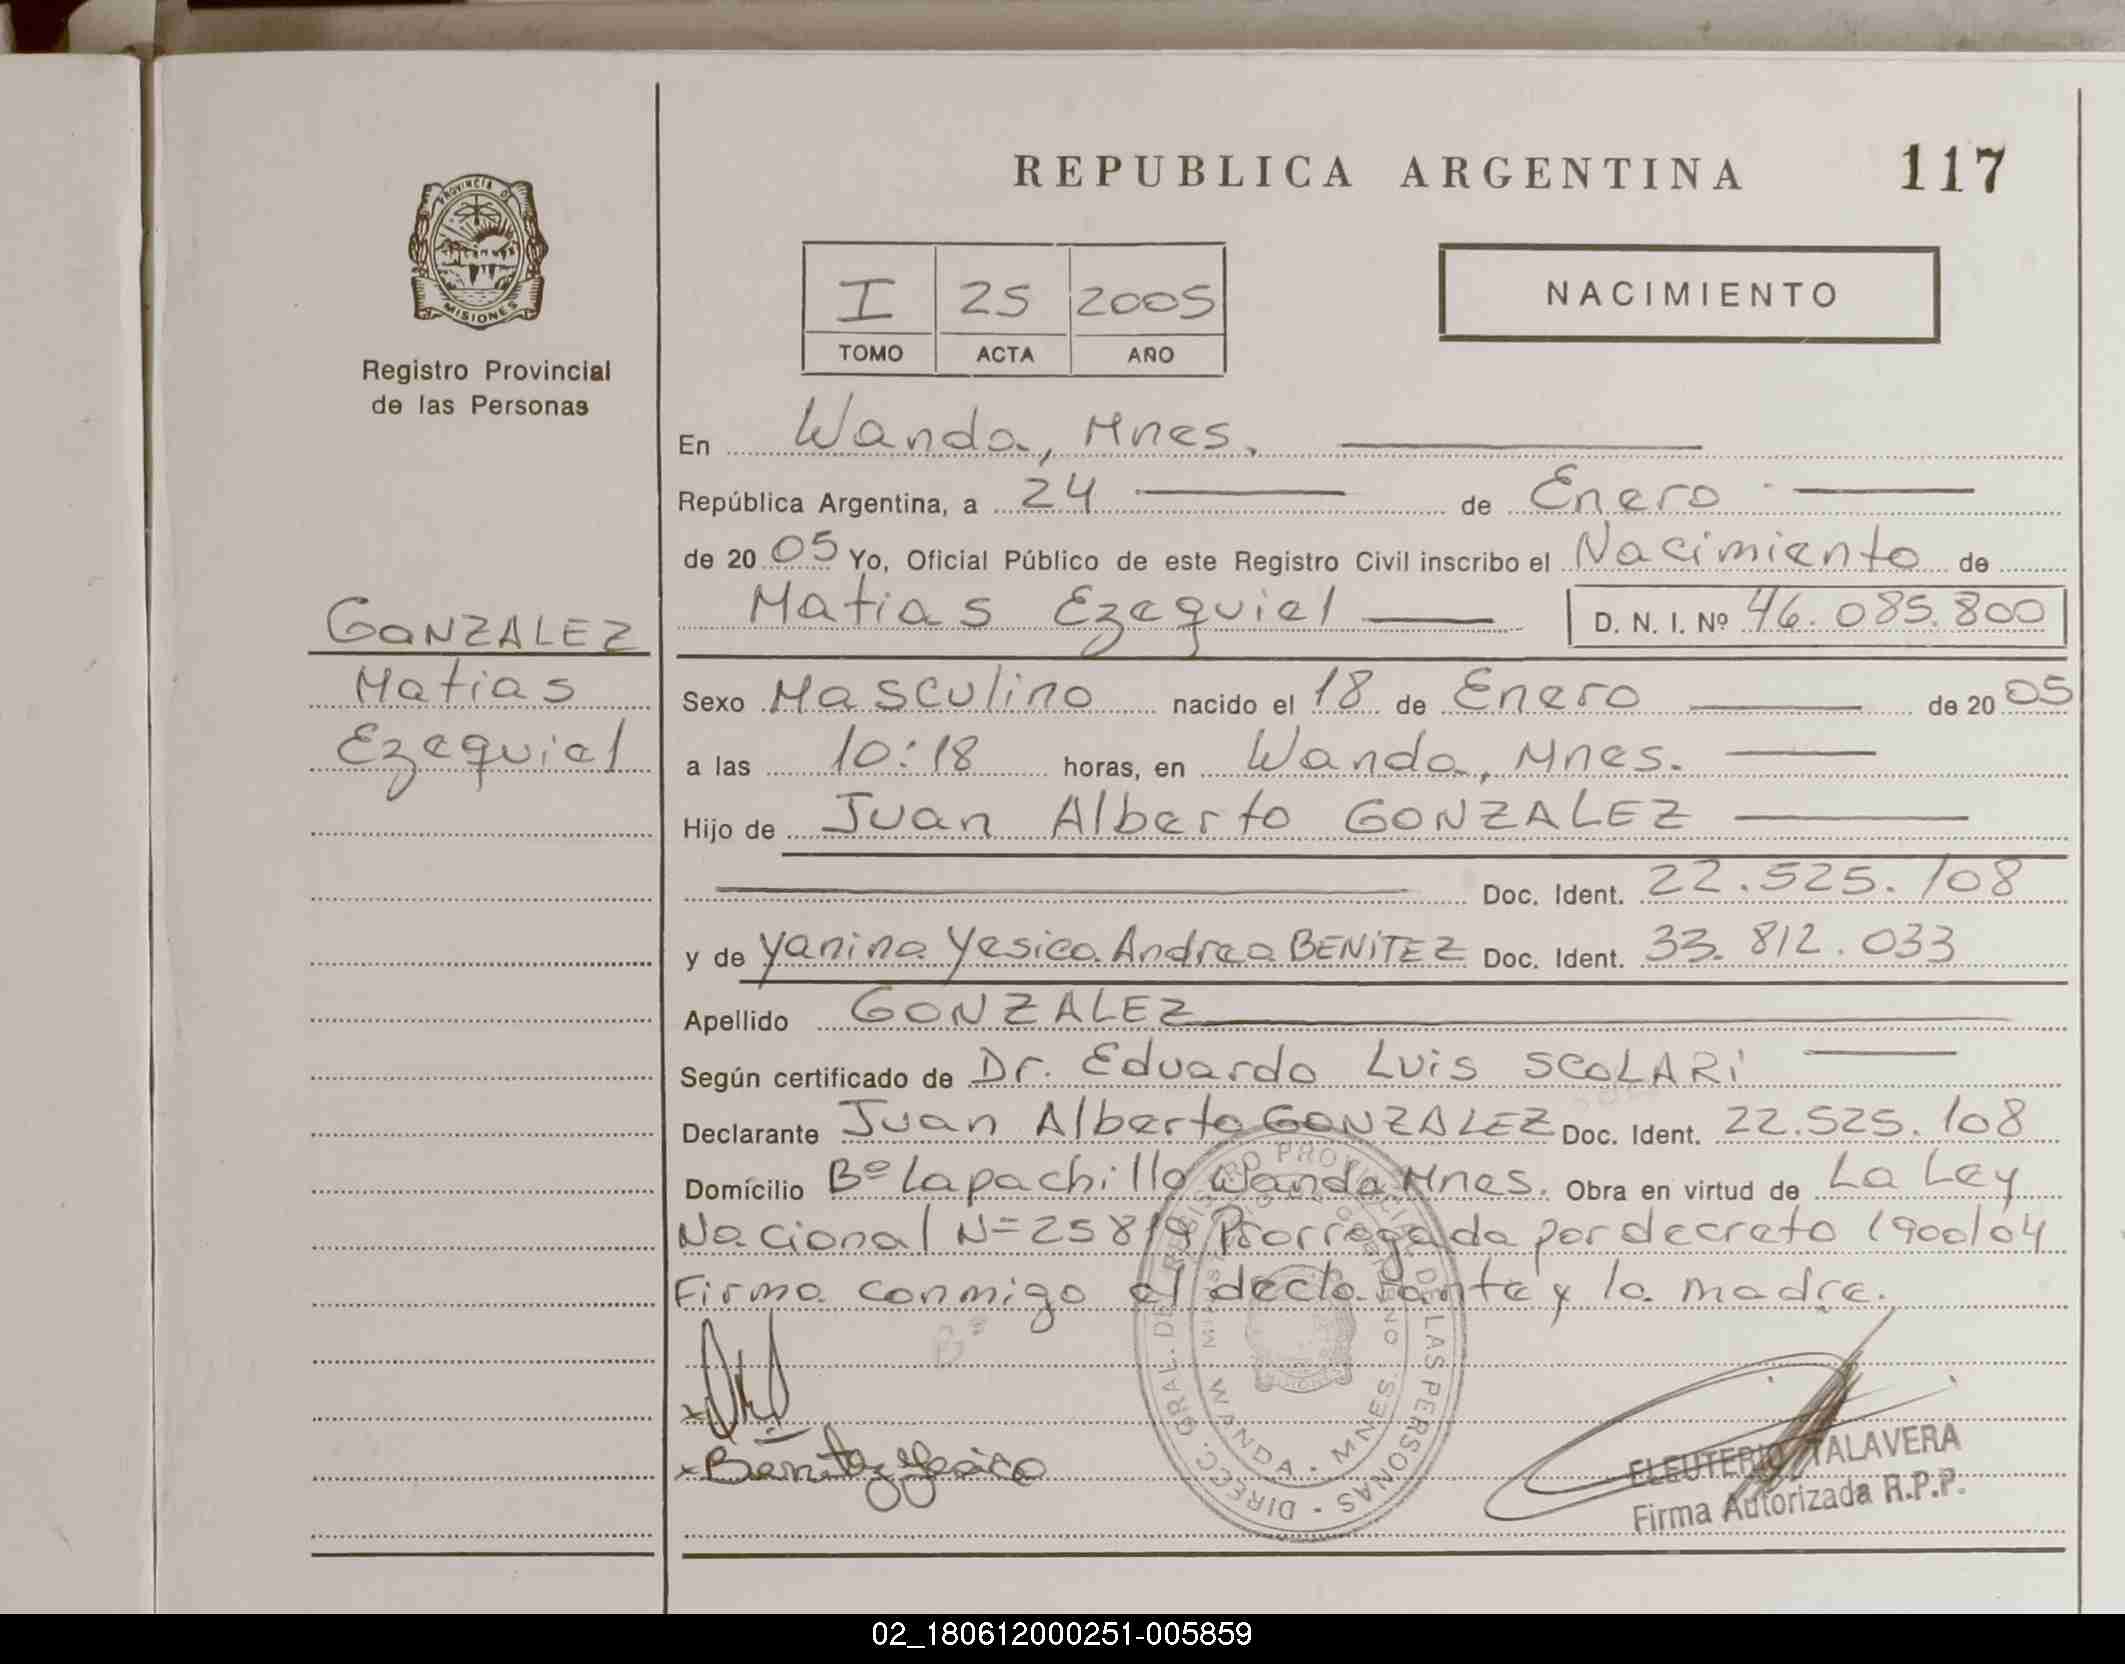 REPUBLICA ARGENTINA 117
PROVINCIA DE
MISIONES
Registro Provincial
de las Personas
I 25 2005
TOMO ACTA AÑO
NACIMIENTO
GONZALEZ
Matias
Ezequiel
En Wanda, Mnes.
República Argentina, a 24 de Enero
de 2005 Yo, Oficial Público de este Registro Civil inscribo el Nacimiento de
Matias Ezequiel D. N. I. Nº 46.085.800
Sexo Masculino nacido el 18 de Enero de 2005
a las 10:18 horas, en Wanda, Mnes.
Hijo de Juan Alberto GONZALEZ
Doc. Ident. 22.525.108
y de Yanina Yesica Andrea BENITEZ Doc. Ident. 33.812.033
Apellido GONZALEZ
Según certificado de Dr. Eduardo Luis SCOLARI
Declarante Juan Alberto GONZALEZ Doc. Ident. 22.525.108
Domicilio Bº Lapachillo Wanda Mnes. Obra en virtud de La Ley
Nacional N= 25819 Prorrogada por decreto 1900/04
Firma conmigo el declarante y la madre.
Benitez Yesica
DIREC. GRAL. DEL REGISTRO PROVINCIAL DE LAS PERSONAS
WANDA - MNES.
ELEUTERIO TALAVERA
Firma Autorizada R.P.P.
02_180612000251-005859